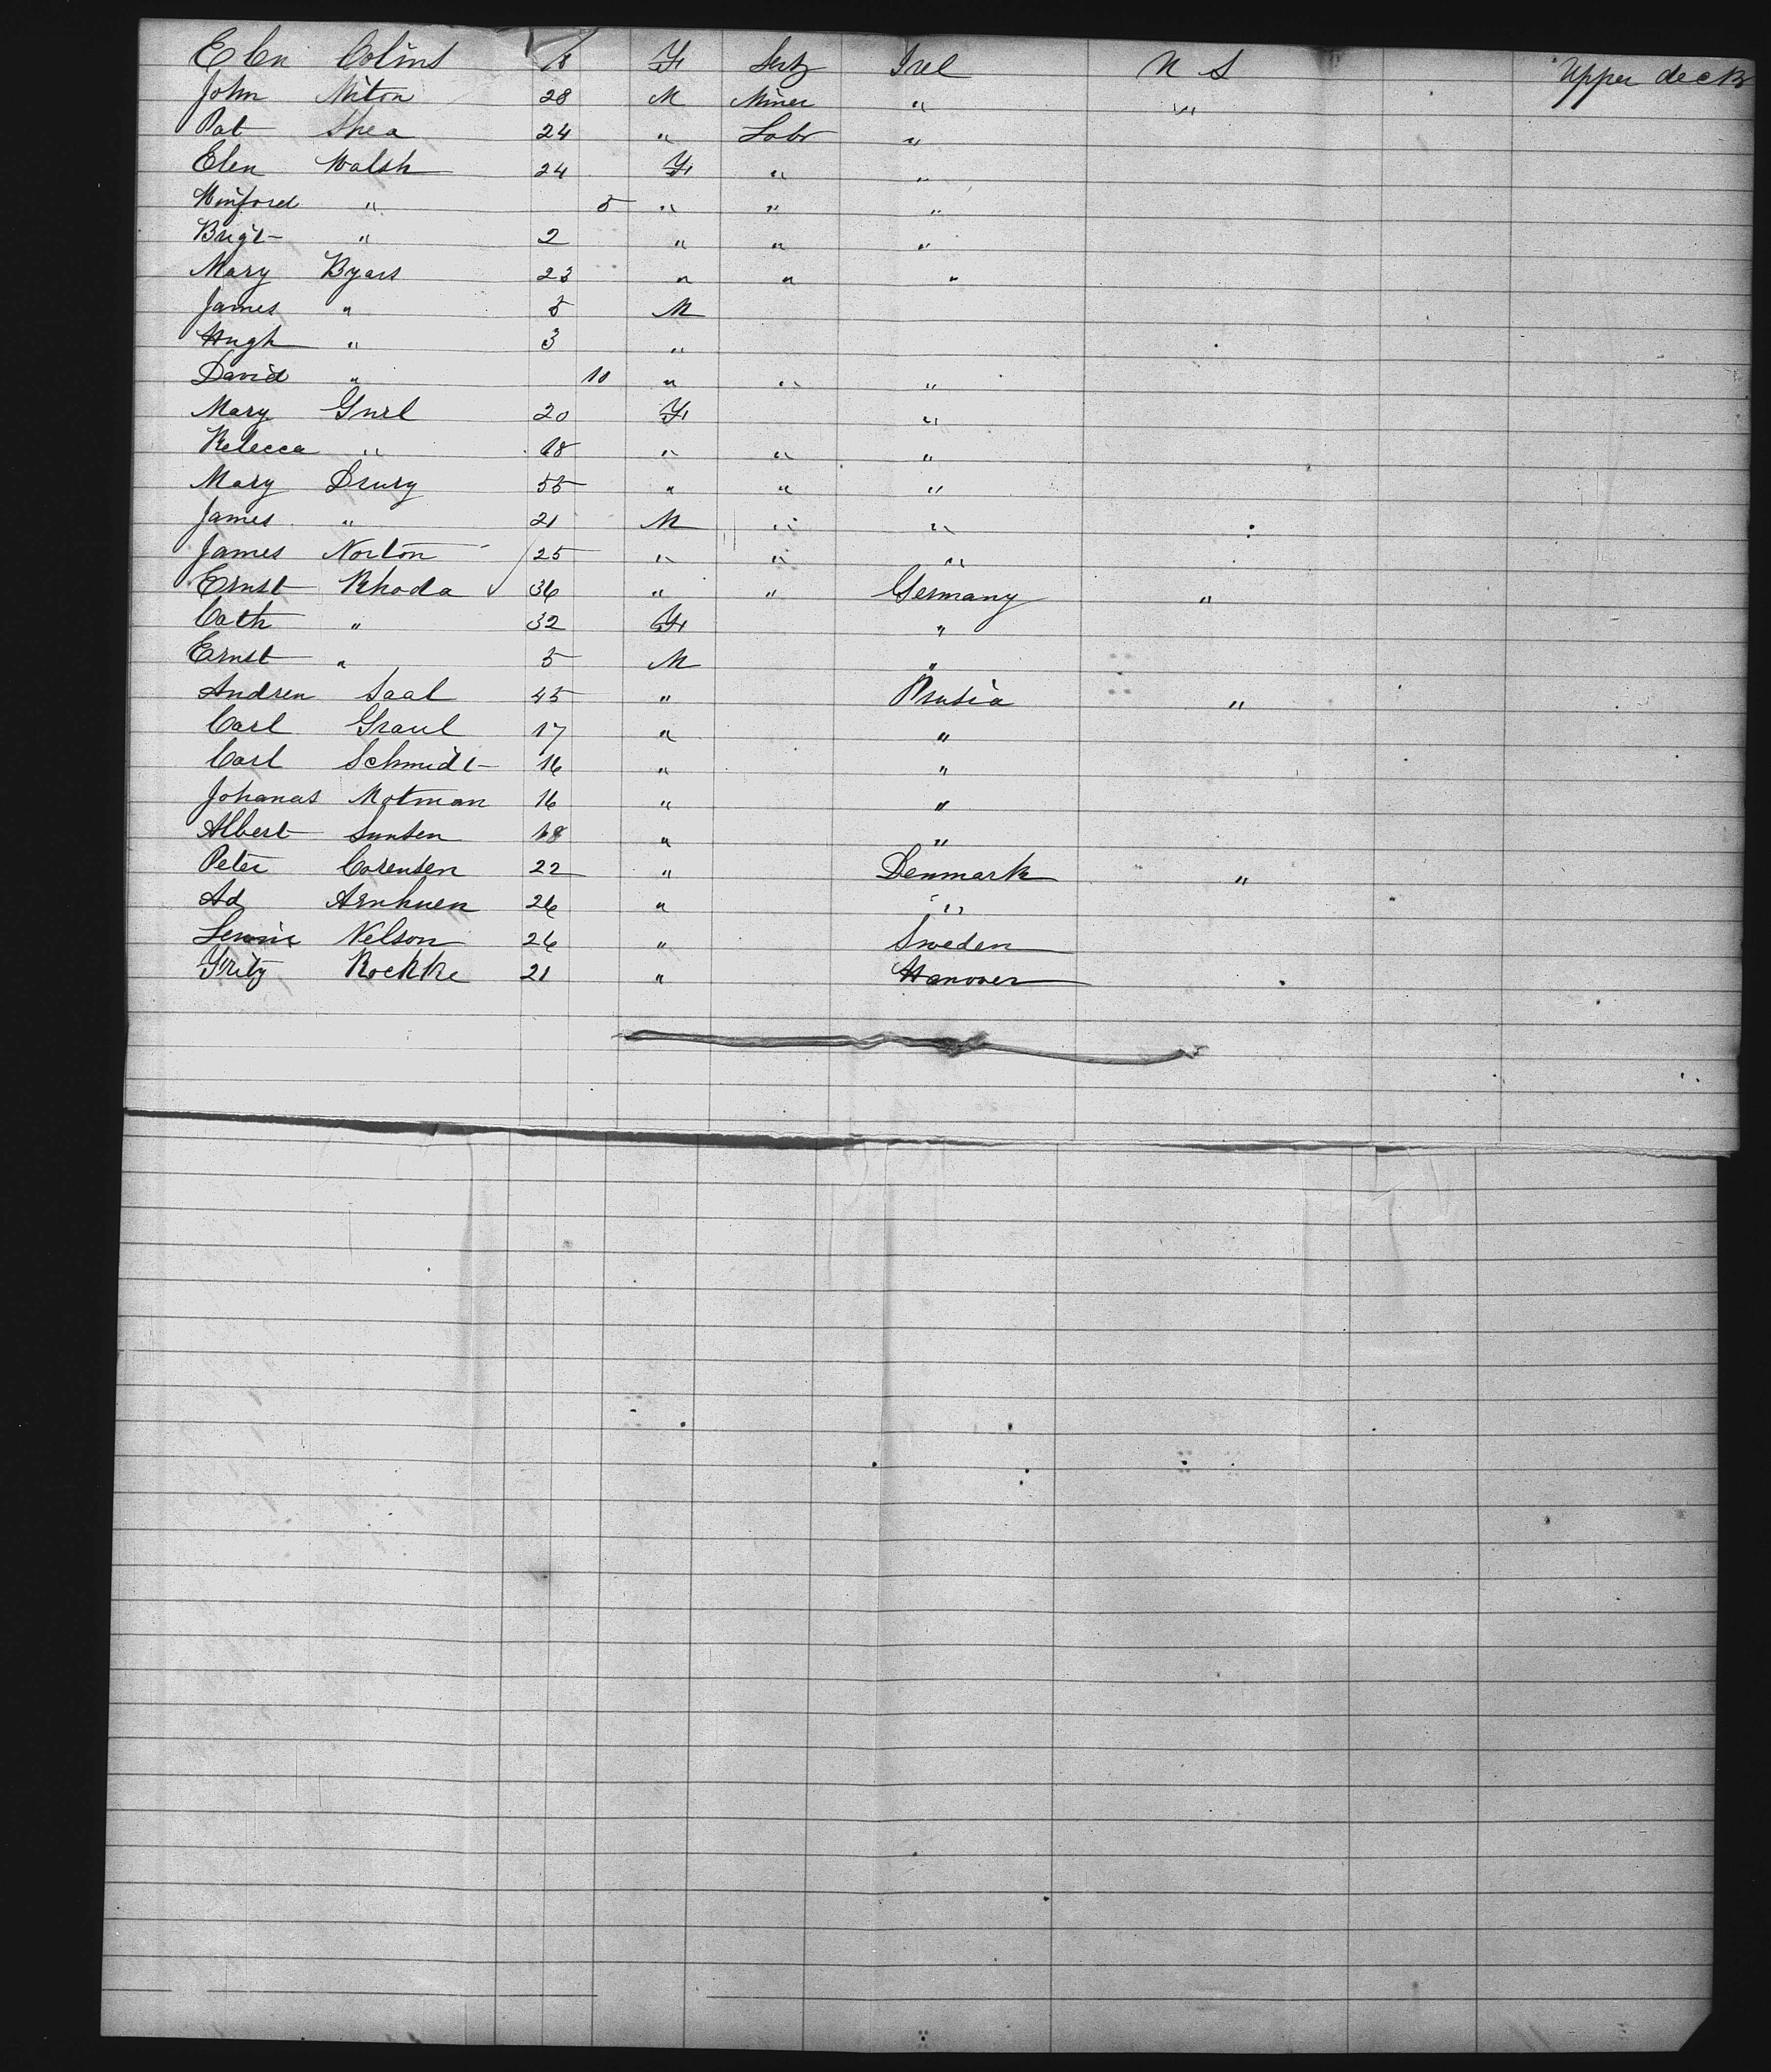 Elen Colins 18 F Sert Irel U S Upper deck
John Niton 28 M Miner " "
Pat Shea 24 " Labr "
Elen Walsh 24 F " "
Winford " 5 " " "
Brigt " 2 " " "
Mary Byars 23 " " "
James " 5 M
Hugh " 3 "
David " 10 " " "
Mary Gurl 20 F "
Rebecca " 18 " " "
Mary Drury 55 " " "
James " 21 M " "
James Norton 25 " " "
Ernst Rhoda 36 " " Germany "
Cath " 32 F "
Ernst " 5 M "
Andren Saal 45 " Prusia "
Carl Graul 17 " "
Carl Schmidt 16 " "
Johanas Motman 16 " "
Albert Sunsen 18 " "
Peter Corensen 22 " Denmark "
Ad Arnhuen 26 " "
Nelson 26 " Sweden
Fritz Rockke 21 " Hanover